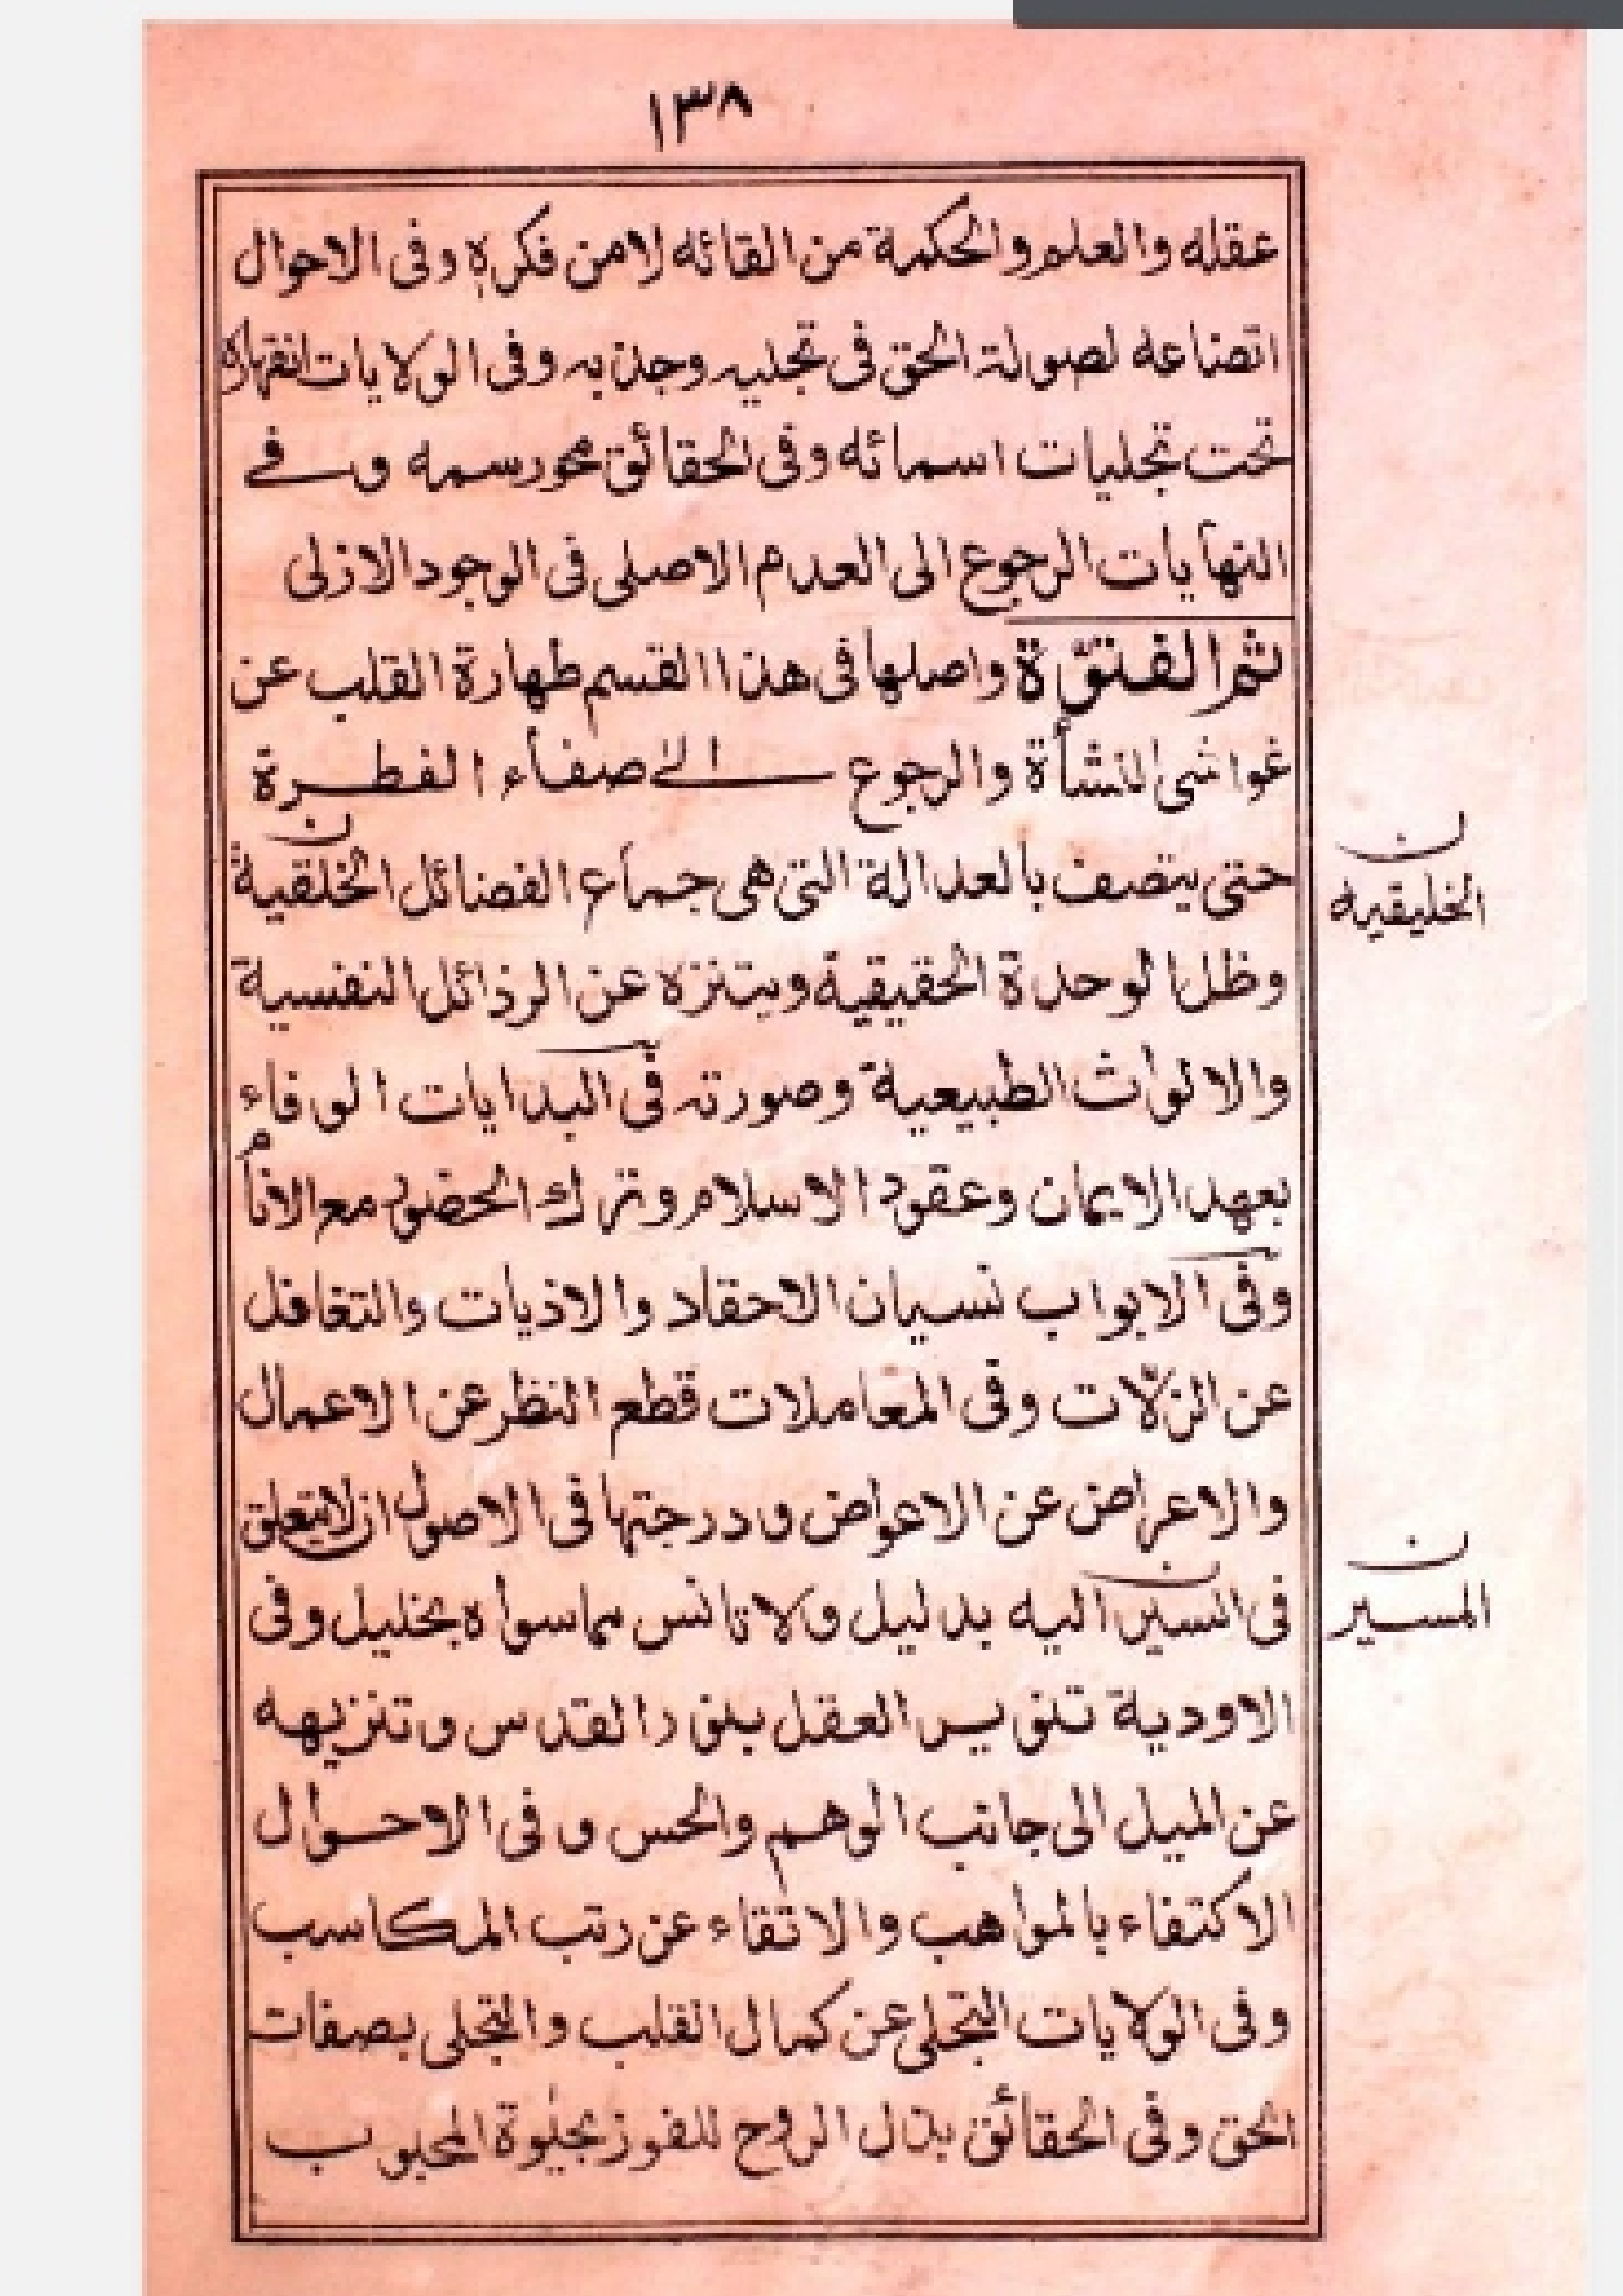 ١٣٨
عقله والعلم والحكمة من القائه لا من فكره وفى الاحوال
اتضاعه لصولة الحق فى تجليه وجذبه وفى الولايات انقهاره
تحت تجليات اسمائه وفى الحقائق محو رسمه وفى
النهايات الرجوع الى العدم الاصلى فى الوجود الازلى
ثم الفتوّة واصلها فى هذا القسم طهارة القلب عن
غواشى النشأة والرجوع الى صفاء الفطرة
حتى يتصف بالعدالة التى هى جماع الفضائل الخلقية
ن
الخليقيه
وظل الوحدة الحقيقية ويتنزه عن الرذائل النفسية
والالواث الطبيعية وصورته فى البدايات الوفاء
بعهد الايمان وعقود الاسلام وترك الخصو مع الانام
وفى الابواب نسيان الاحقاد والاذيات والتغافل
عن الزلّات وفى المعاملات قطع النظر عن الاعمال
والاعراض عن الاعواض ودرجتها فى الاصول ان لا يتعلق
فى السير اليه بدليل ولا تانس بماسواه بخليل وفى
ن
المسير
الاودية تنوير العقل بنور القدس وتنزيهه
عن الميل الى جانب الوهم والحس وفى الاحوال
الاكتفاء بالمواهب والاتقاء عن رتب المكاسب
وفى الولايات التجلى عن كمال القلب والتجلى بصفات
الحق وفى الحقائق بذل الروح للفوز بجلوة المحبوب